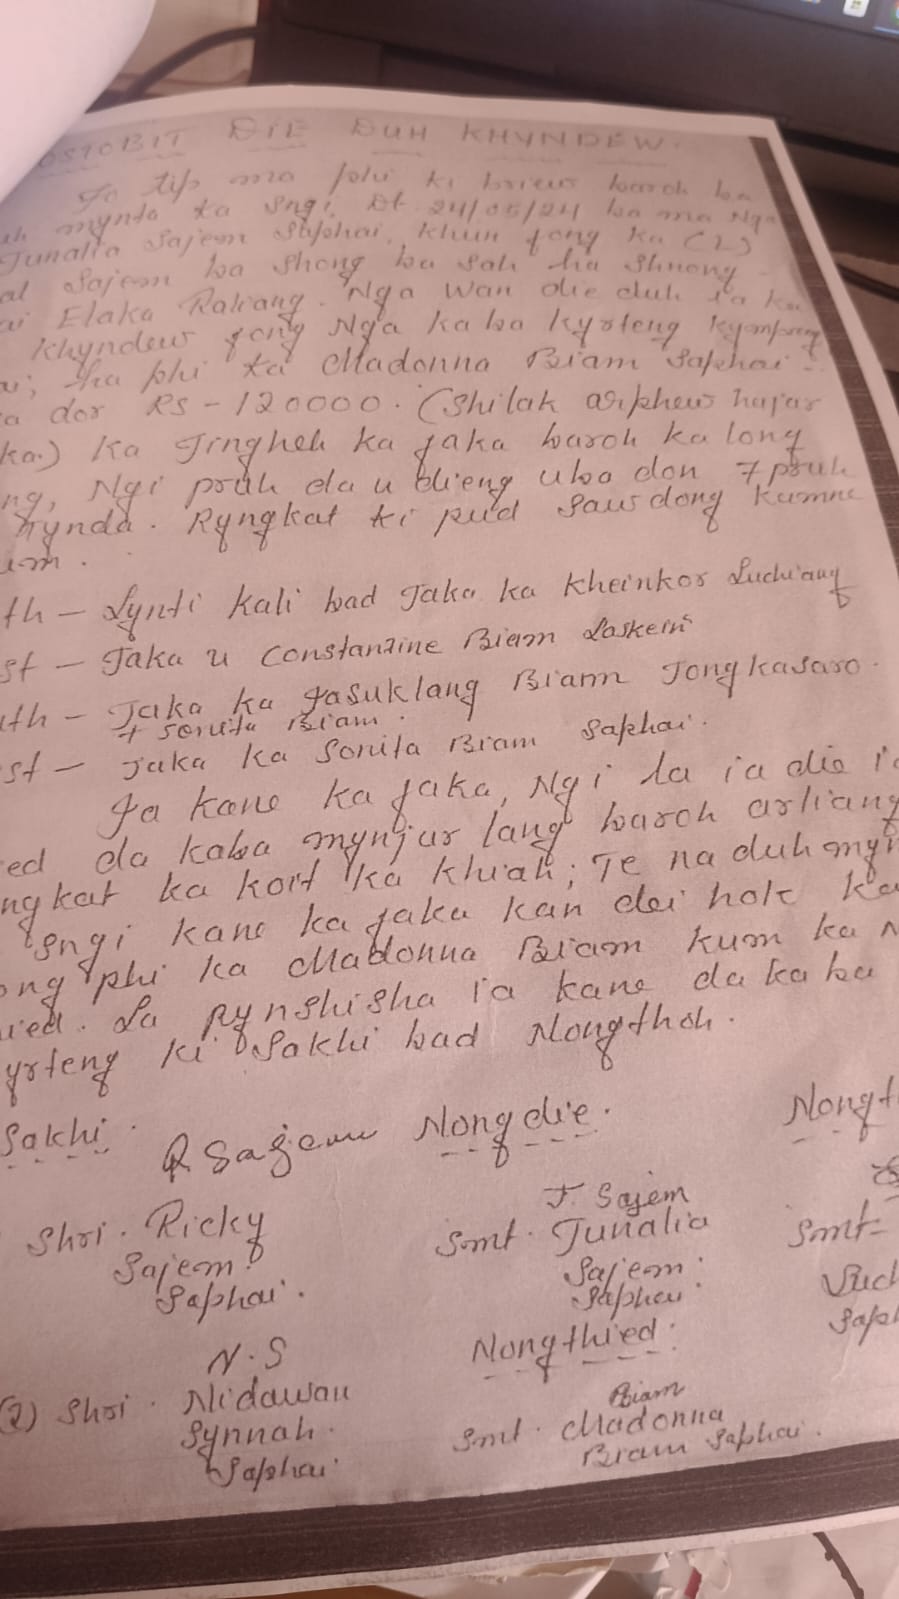 OSTOBIT DIE DUH KHYNDEW.
To tip ma phi ki briew baroh ba
mynta ka sngi Dt 24/05/24 ba ma Nga
Junalia Sajem Saphai, khun jong ka (L)
al Sajem ba shong ba sah ha Shnong
ai Elaka Raliang. Nga wan die duh ia ka
Khyndew jong Nga kaba kyrteng
ha phi ka Madonna Biam Saphai
ka dor RS - 120000. (Shilak arphew hajar
ka.) Ka Jingheh ka jaka baroh ka long
ng, Ngi pruh da u dieng uba don 7 pruh
Hynda. Ryngkat ki pud sawdong kumne
um.
th - Lynti kali bad Jaka ka Kheinkor Luchiang
st - Jaka u Constanzine Biam Laskein
uth - Jaka ka Jasuklang Biam Jongkasaro.
+ Sonita Biam.
st - Jaka ka Sonita Biam Saphai.
Ia kane ka jaka, Ngi la ia die ia
ed da kaba mynjur lang baroh arliang
ngkat ka kort ka khiah; Te na duh myn
sngi kane ka jaka kan dei hok ka
ong phi ka Madonna Biam kum ka N
ied. La pynshisha ia kane da kaba
yrteng ki Sakhi bad Nongthoh.
Sakhi. Nongdie. Nongt
R Sajem
J. Sajem
Shri. Ricky Smt. Junalia Smt-
Sajem. Sajem.
Saphai. Saphai
N.S Nongthied.
(2) Shri. Nidawan Biam
Synnah. Smt. Madonna
Saphai Biam Saphai.